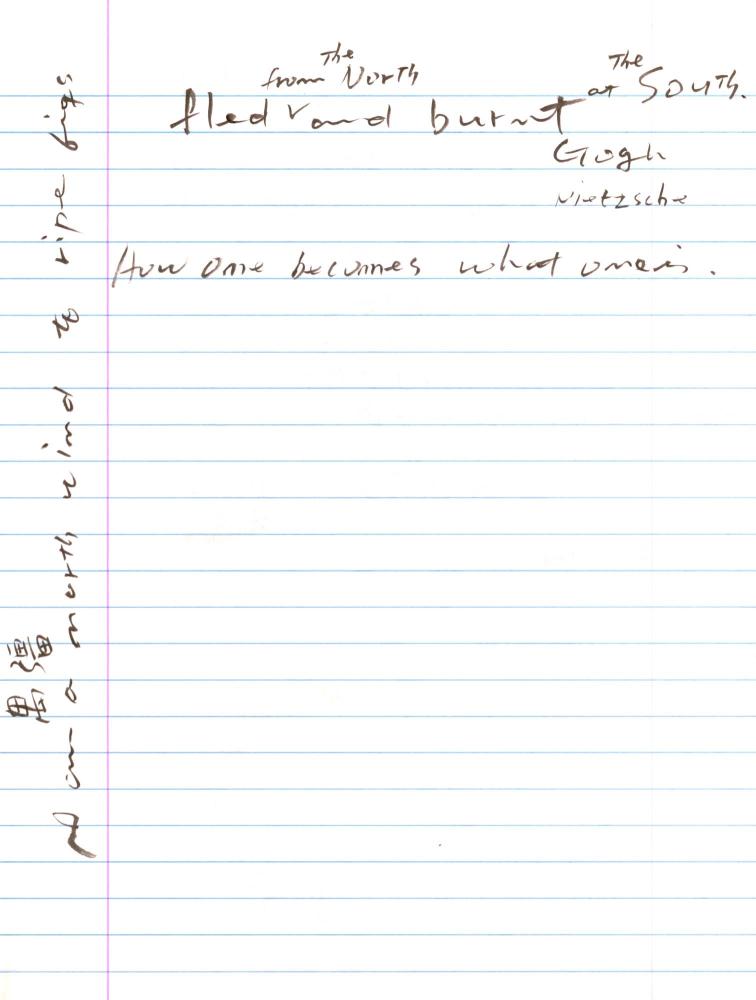 The The
from North at South.
fled and burnt
Gogh
Nietzsche
How one becomes what one is.
am a north wind to ripe figs